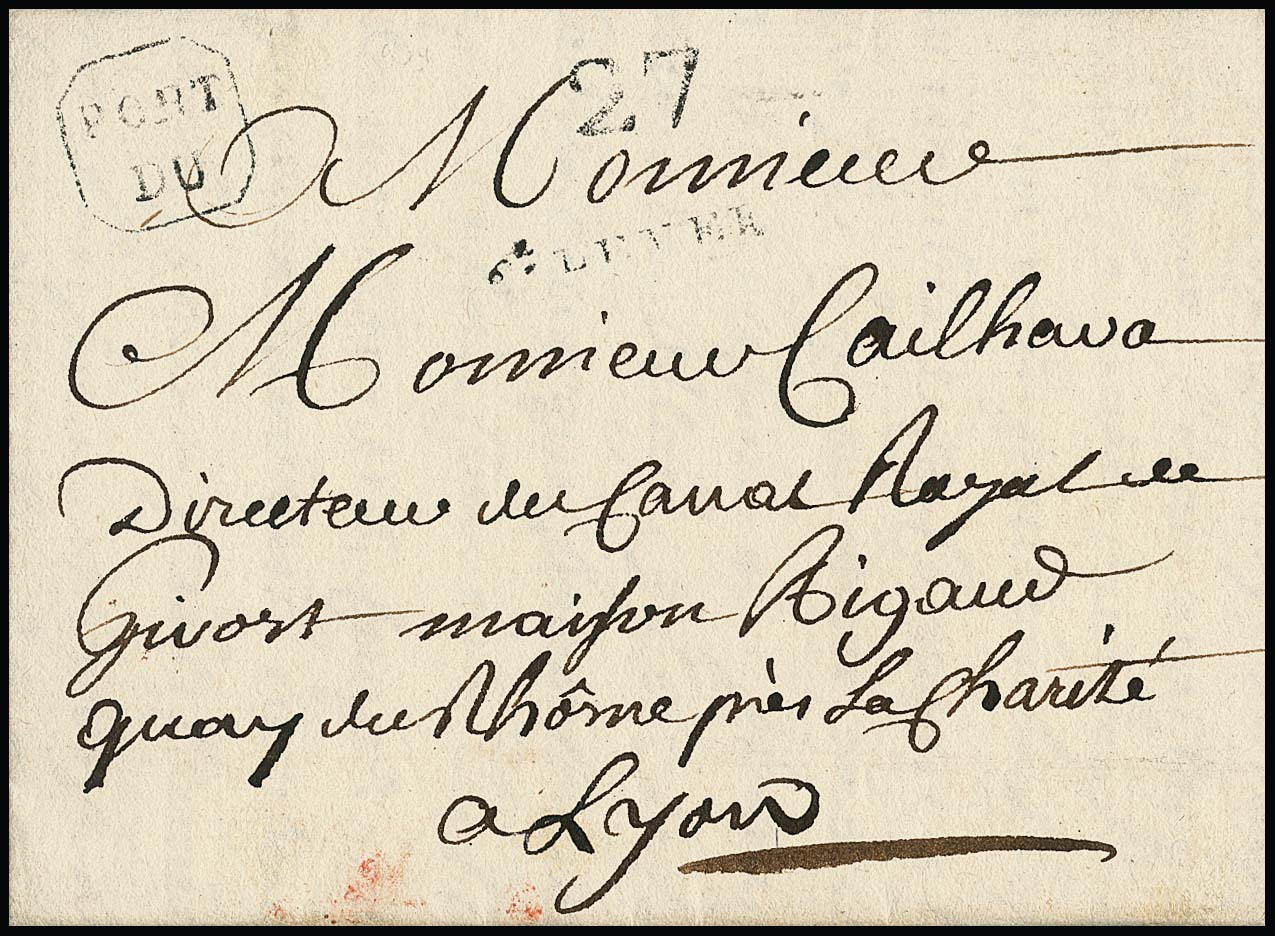 PORT
DU
27
Monsieur
St. LIEVER
Monsieur Cailhava
Directeur du Canal Royal de
Givort maison Rigaud
quay du Rhône près la Charité
a Lyon